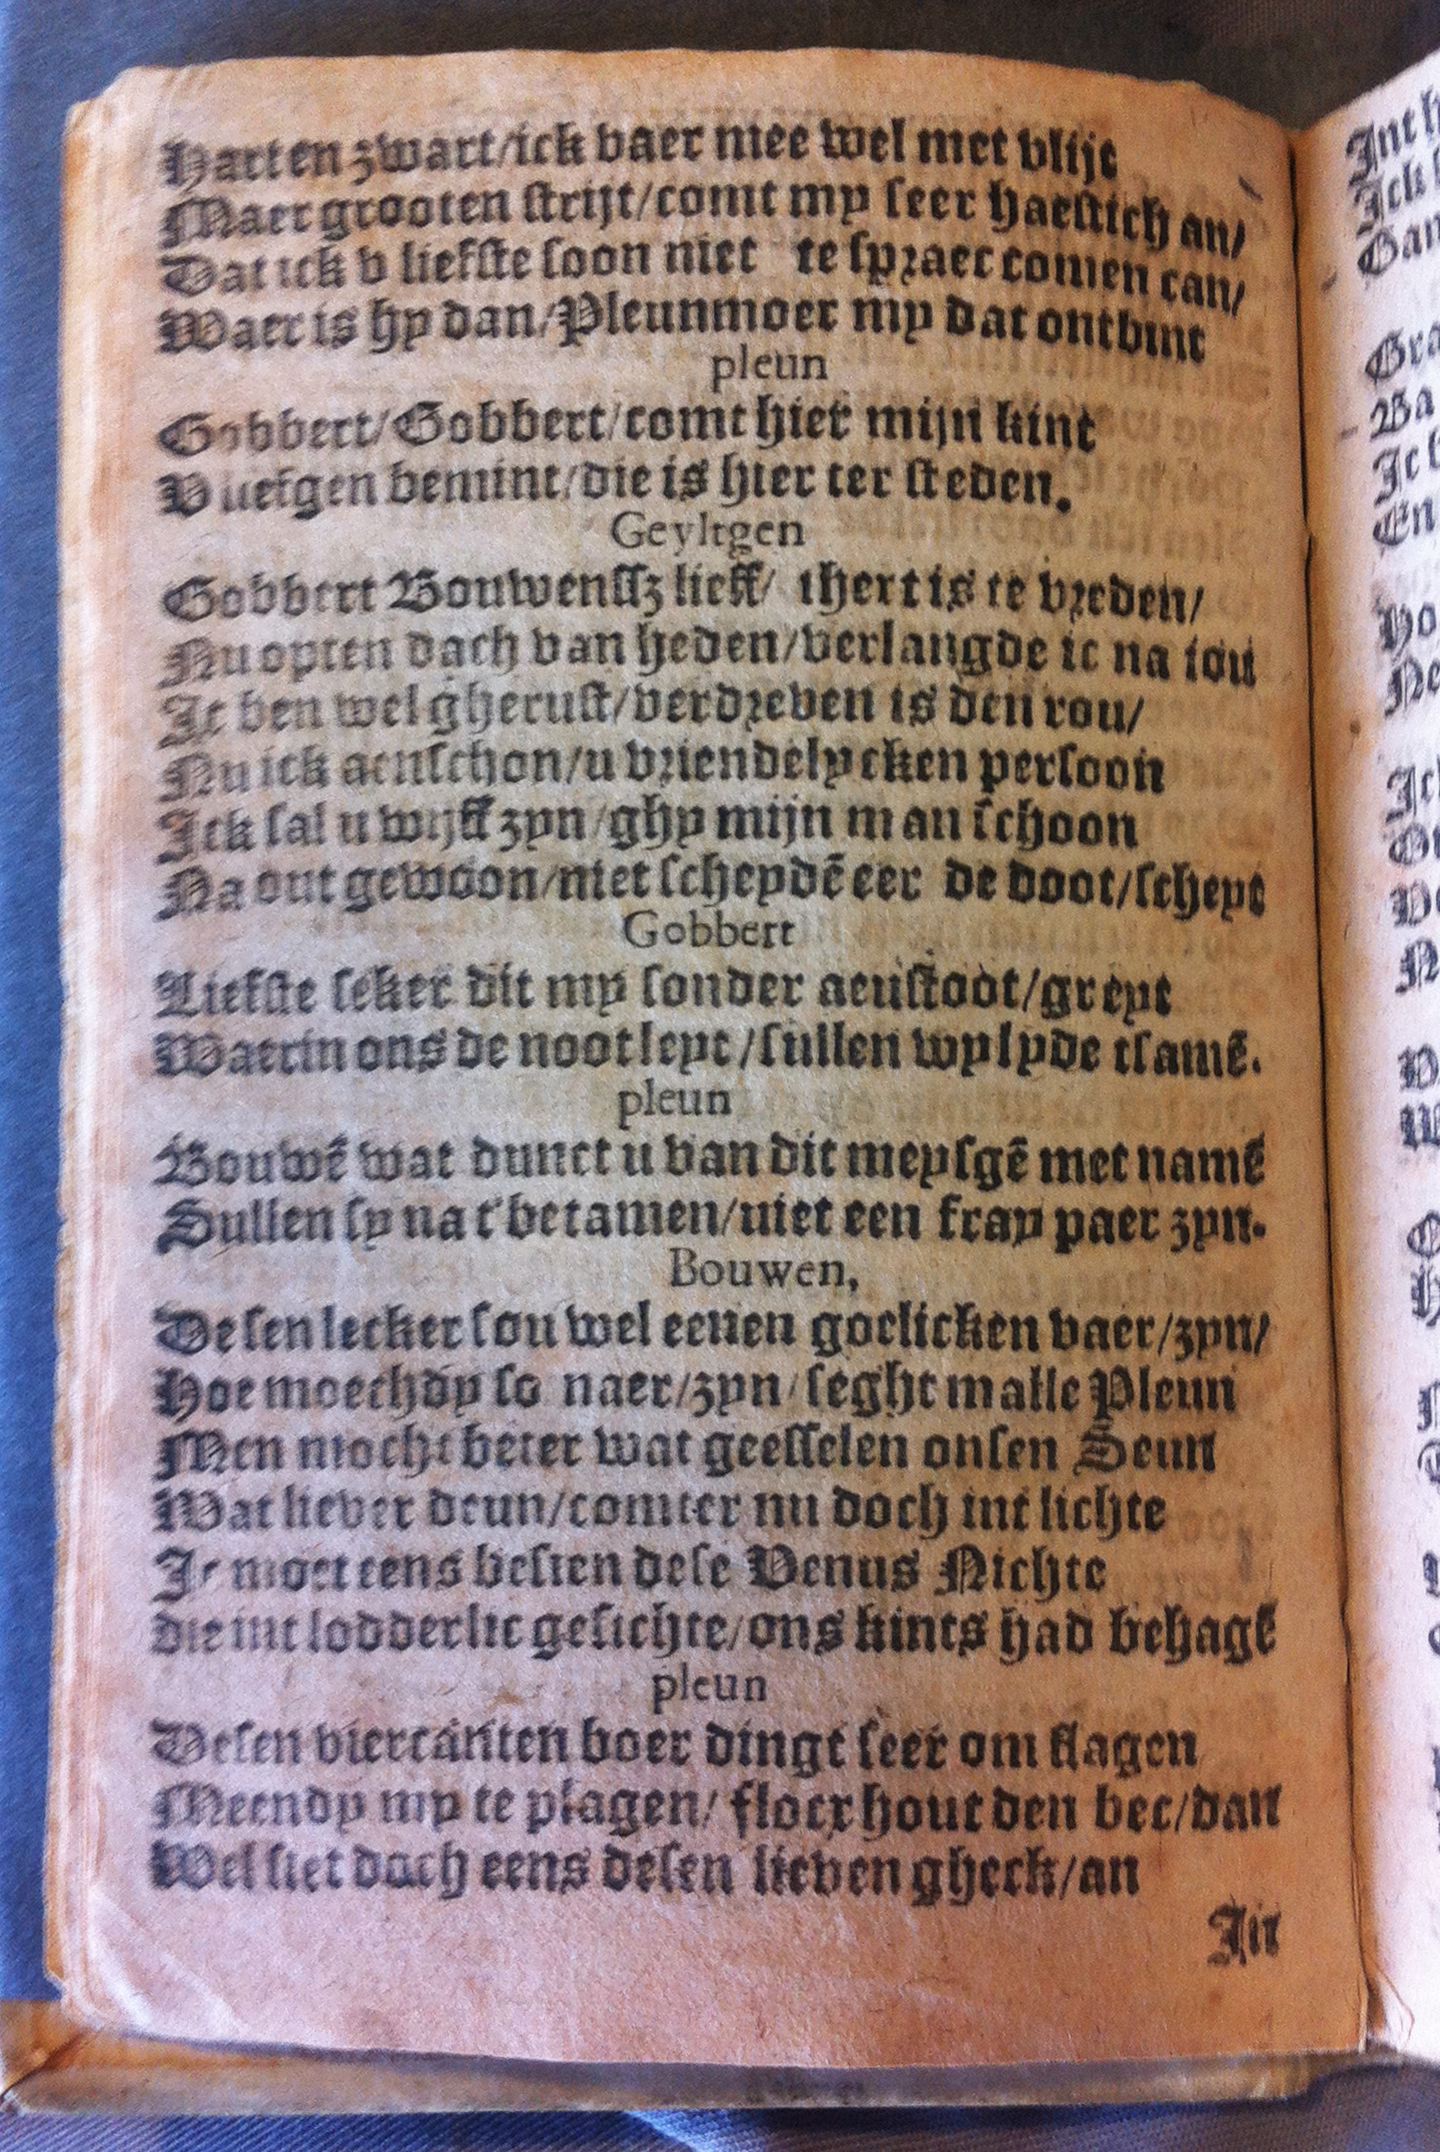 Hart en zwart/ick vaer mee wel met vlijt
Maer grooten strijt/comt my seer haestich an/
Dat ick v liefste soon niet te spraec comen can/
Waer is hy dan/Pleunmoer my dat ontbint
pleun
Gobbert/Gobbert/comt hier mijn kint
V liefgen bemint/die is hier ter steden.
Geyltgen
Gobbert Bouwenssz lieff/ thert is te vreden/
Nu opten dach van heden/verlangde ic na iou
Ic ben wel gherust/verdreven is den rou/
Nu ick aenschon/u vriendelycken persoon
Ick sal u wijff zyn/ghy mijn man schoon
Na out gewoon/niet scheydē eer de doot/scheyt
Gobbert
Liefste seker dit my sonder aenstoot/greyt
Waerin ons de noot leyt/sullen wy lyde tsamē.
pleun
Bouwē wat dunct u van dit meysgē met namē
Sullen sy na t'betamen/niet een fray paer zyn.
Bouwen,
Desen lecker sou wel eenen goelicken vaer/zyn/
Hoe moechdy so naer/zyn/seght malle Pleun
Men mocht beter wat geesselen onsen Seun
Wat liever deun/comter nu doch int lichte
Ic moet eens besien dese Venus Nichte
die int lodderlic gesichte/ons kints had behagē
pleun
Desen viercanten boer dingt seer om slagen
Meendy my te plagen/ floerx hout den bec/dan
Wel siet doch eens desen lieven gheck/an
Int
Ick